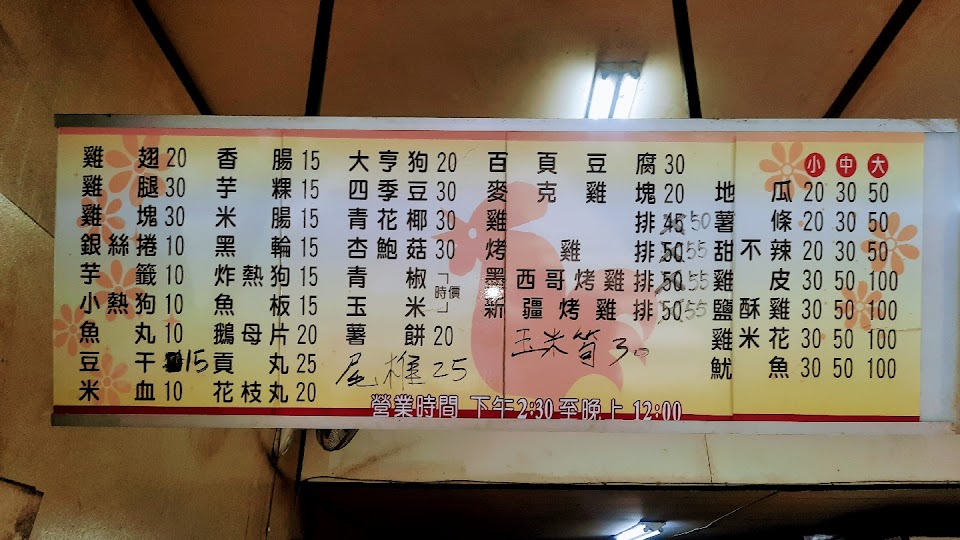 雞翅20
雞腿30
雞塊30
銀絲捲10
芋籤10
小熱狗10
魚丸10
豆干15
米血10
香腸15
芋粿15
米腸15
黑輪15
炸熱狗15
魚板15
鵝母片20
貢丸25
花枝丸20
大亨狗20
四季豆30
青花椰30
杏鮑菇30
青椒
玉米
時價
薯餅20
尾椎25
百頁豆腐30
麥克雞塊20
雞排45 50
烤雞排50 55
墨西哥烤雞排50 55
新疆烤雞排50 55
玉米筍30
小 中 大
地瓜20 30 50
薯條20 30 50
甜不辣20 30 50
雞皮30 50 100
鹽酥雞30 50 100
雞米花30 50 100
魷魚30 50 100
營業時間 下午2:30至晚上 12:00